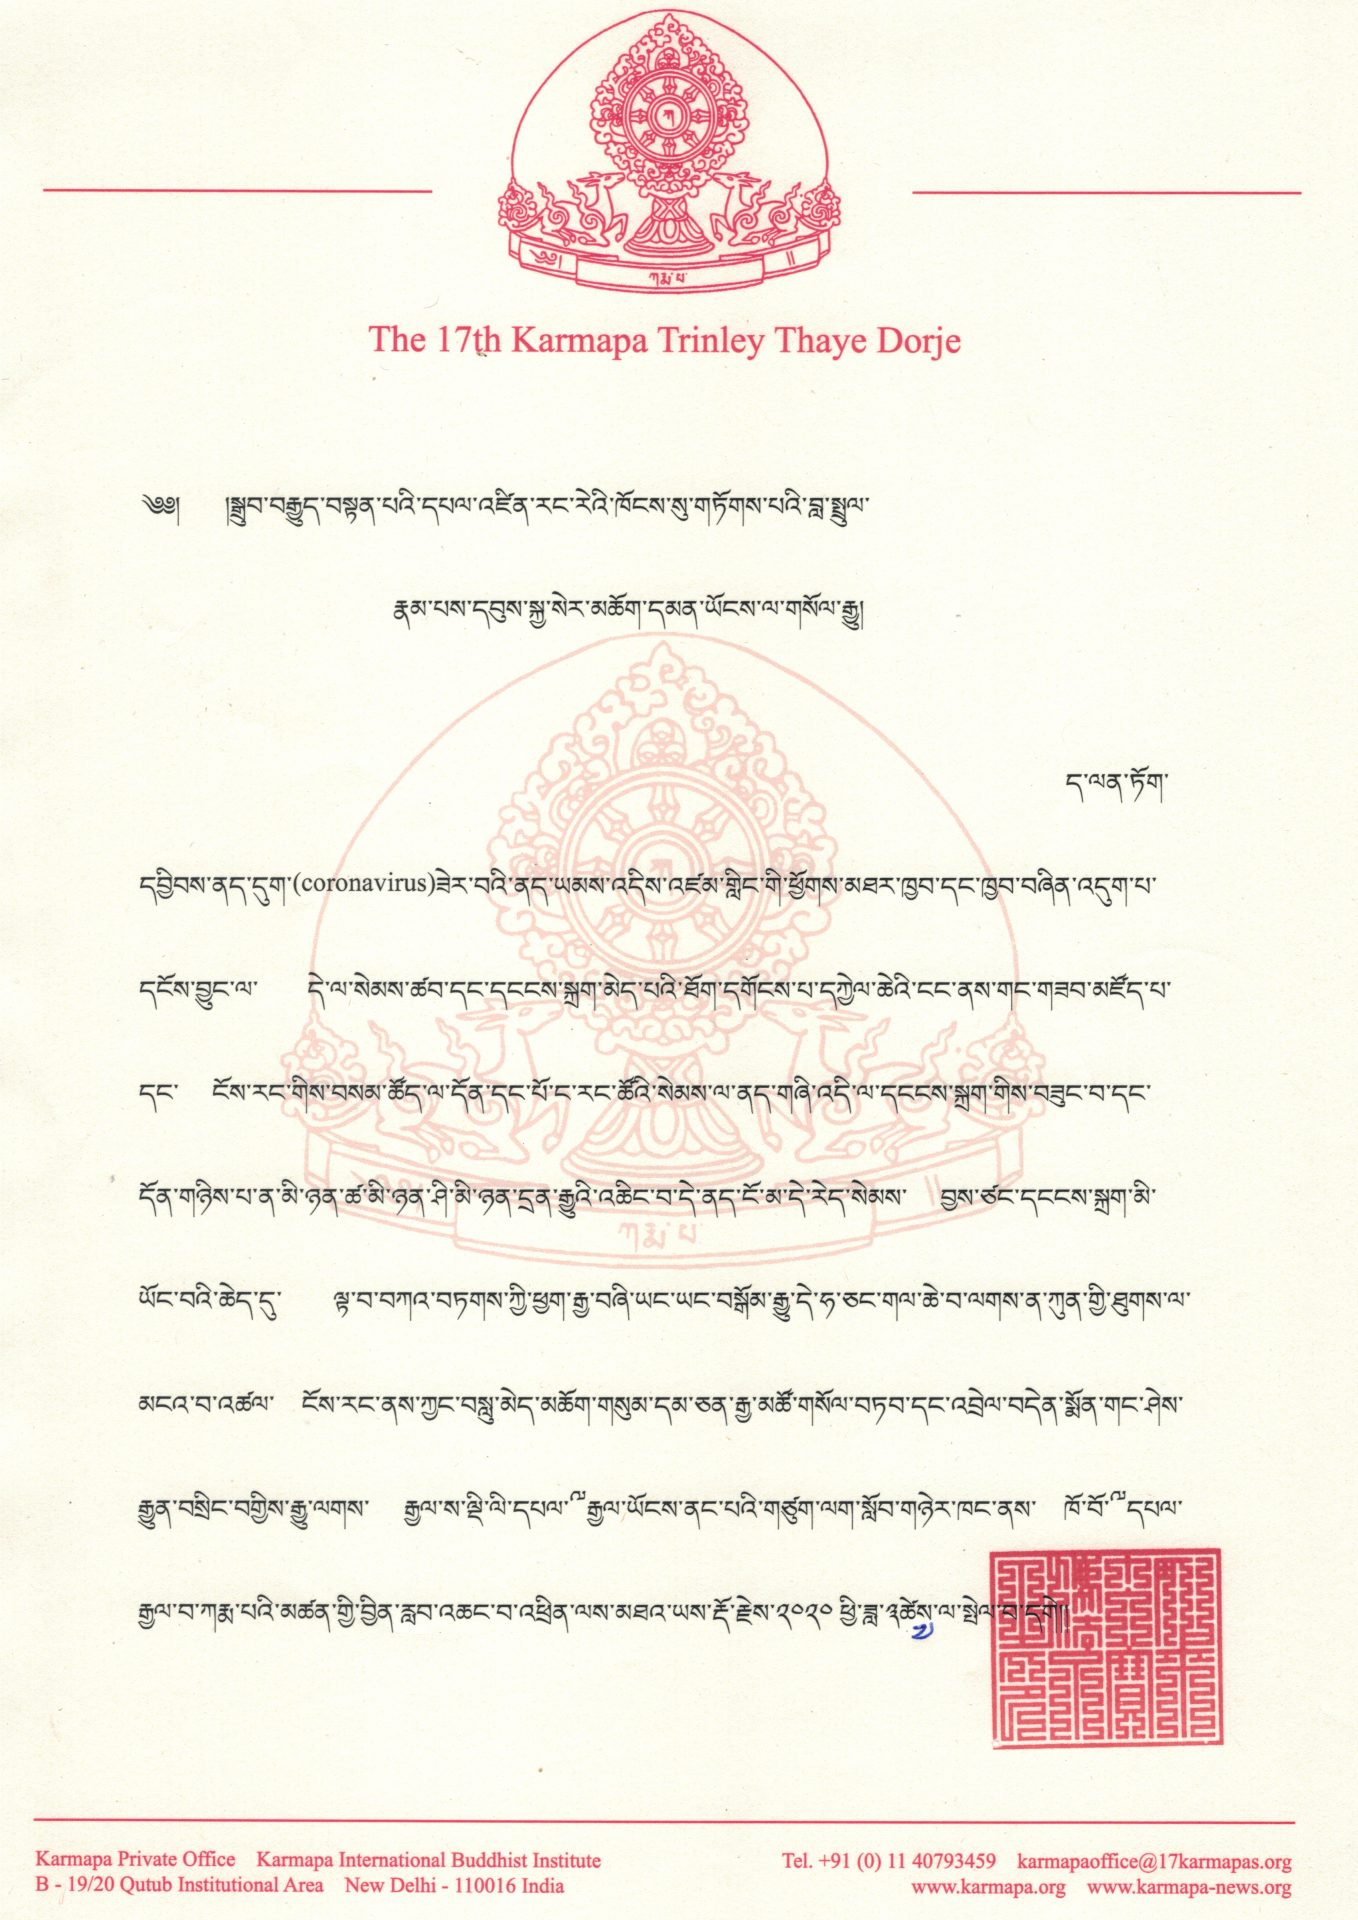 ཀ
༄༅། ॥
ཀརྨ་པ་
The 17th Karmapa Trinley Thaye Dorje
༄༅། །སྒྲུབ་བརྒྱུད་བསྟན་པའི་དཔལ་འཛིན་རང་རེའི་ཁོངས་སུ་གཏོགས་པའི་བླ་སྤྲུལ་
རྣམ་པས་དབུས་སྐྱ་སེར་མཆོག་དམན་ཡོངས་ལ་གསོལ་རྒྱུ།
ད་ལན་ཏོག་
དབྱིབས་ནད་དུག་(coronavirus)ཟེར་བའི་ནད་ཡམས་འདིས་འཛམ་གླིང་གི་ཕྱོགས་མཐར་ཁྱབ་དང་ཁྱབ་བཞིན་འདུག་པ་
དངོས་བྱུང་ལ་ དེ་ལ་སེམས་ཚབ་དང་དངངས་སྐྲག་མེད་པའི་ཐོག་དགོངས་པ་དཀྱེལ་ཆེའི་ངང་ནས་གང་གཟབ་མཛོད་པ་
དང་ ངོས་རང་གིས་བསམ་ཚོད་ལ་དོན་དང་པོ་ང་རང་ཚོའི་སེམས་ལ་ནད་གཞི་འདི་ལ་དངངས་སྐྲག་གིས་བཟུང་བ་དང་
དོན་གཉིས་པ་ན་མི་ཉན་ཚ་མི་ཉན་ཤི་མི་ཉན་དྲན་རྒྱུའི་འཆིང་བ་དེ་ནད་ངོ་མ་དེ་རེད་སེམས་ བྱས་ཙང་དངངས་སྐྲག་མི་
ཡོང་བའི་ཆེད་དུ་ ལྟ་བ་བཀའ་བཏགས་ཀྱི་ཕྱག་རྒྱ་བཞི་ཡང་ཡང་བསྒོམ་རྒྱུ་དེ་ཧ་ཅང་གལ་ཆེ་བ་ལགས་ན་ཀུན་གྱི་ཐུགས་ལ་
མངའ་བ་འཚལ་ ངོས་རང་ནས་ཀྱང་བསླུ་མེད་མཆོག་གསུམ་དམ་ཅན་རྒྱ་མཚོ་གསོལ་བཏབ་དང་འབྲེལ་བདེན་སྨོན་གང་ཤེས་
རྒྱུན་བསྲིང་བགྱིས་རྒྱུ་ལགས་ རྒྱལ་ས་ལྡི་ལི་དཔལ་ྉརྒྱལ་ཡོངས་ནང་པའི་གཙུག་ལག་སློབ་གཉེར་ཁང་ནས་ ཁོ་བོ་ྉདཔལ་
རྒྱལ་བ་ཀརྨ་པའི་མཚན་གྱི་བྱིན་རླབ་འཆང་བ་འཕྲིན་ལས་མཐའ་ཡས་རྡོ་རྗེས་༢༠༢༠ ཕྱི་ཟླ་༣ཚེས་༧ལ་སྤེལ་བ་དགེ།།
Karmapa Private Office Karmapa International Buddhist Institute
B - 19/20 Qutub Institutional Area New Delhi - 110016 India
Tel. +91 (0) 11 40793459 karmapaoffice@17karmapas.org
www.karmapa.org www.karmapa-news.org